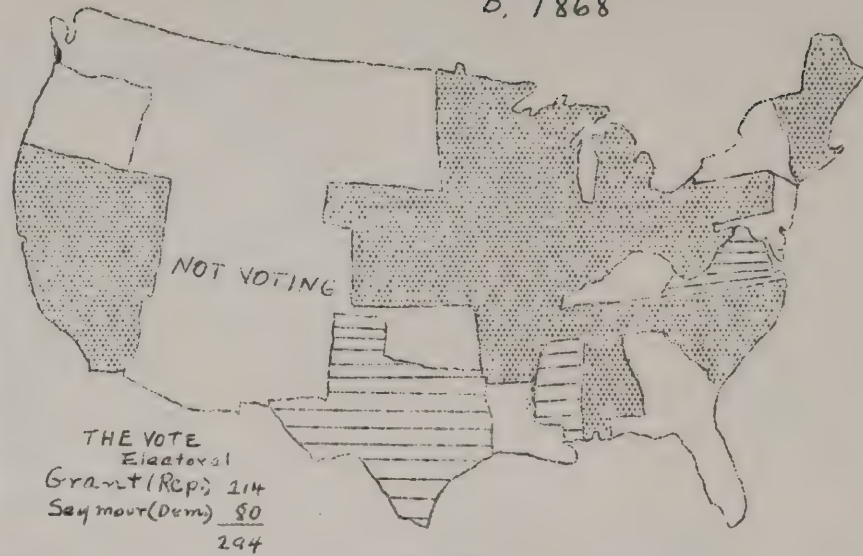 b. 1868
NOT VOTING
THE VOTE
Electoral
Grant (Rep.) 214
Seymour (Dem) 80
294